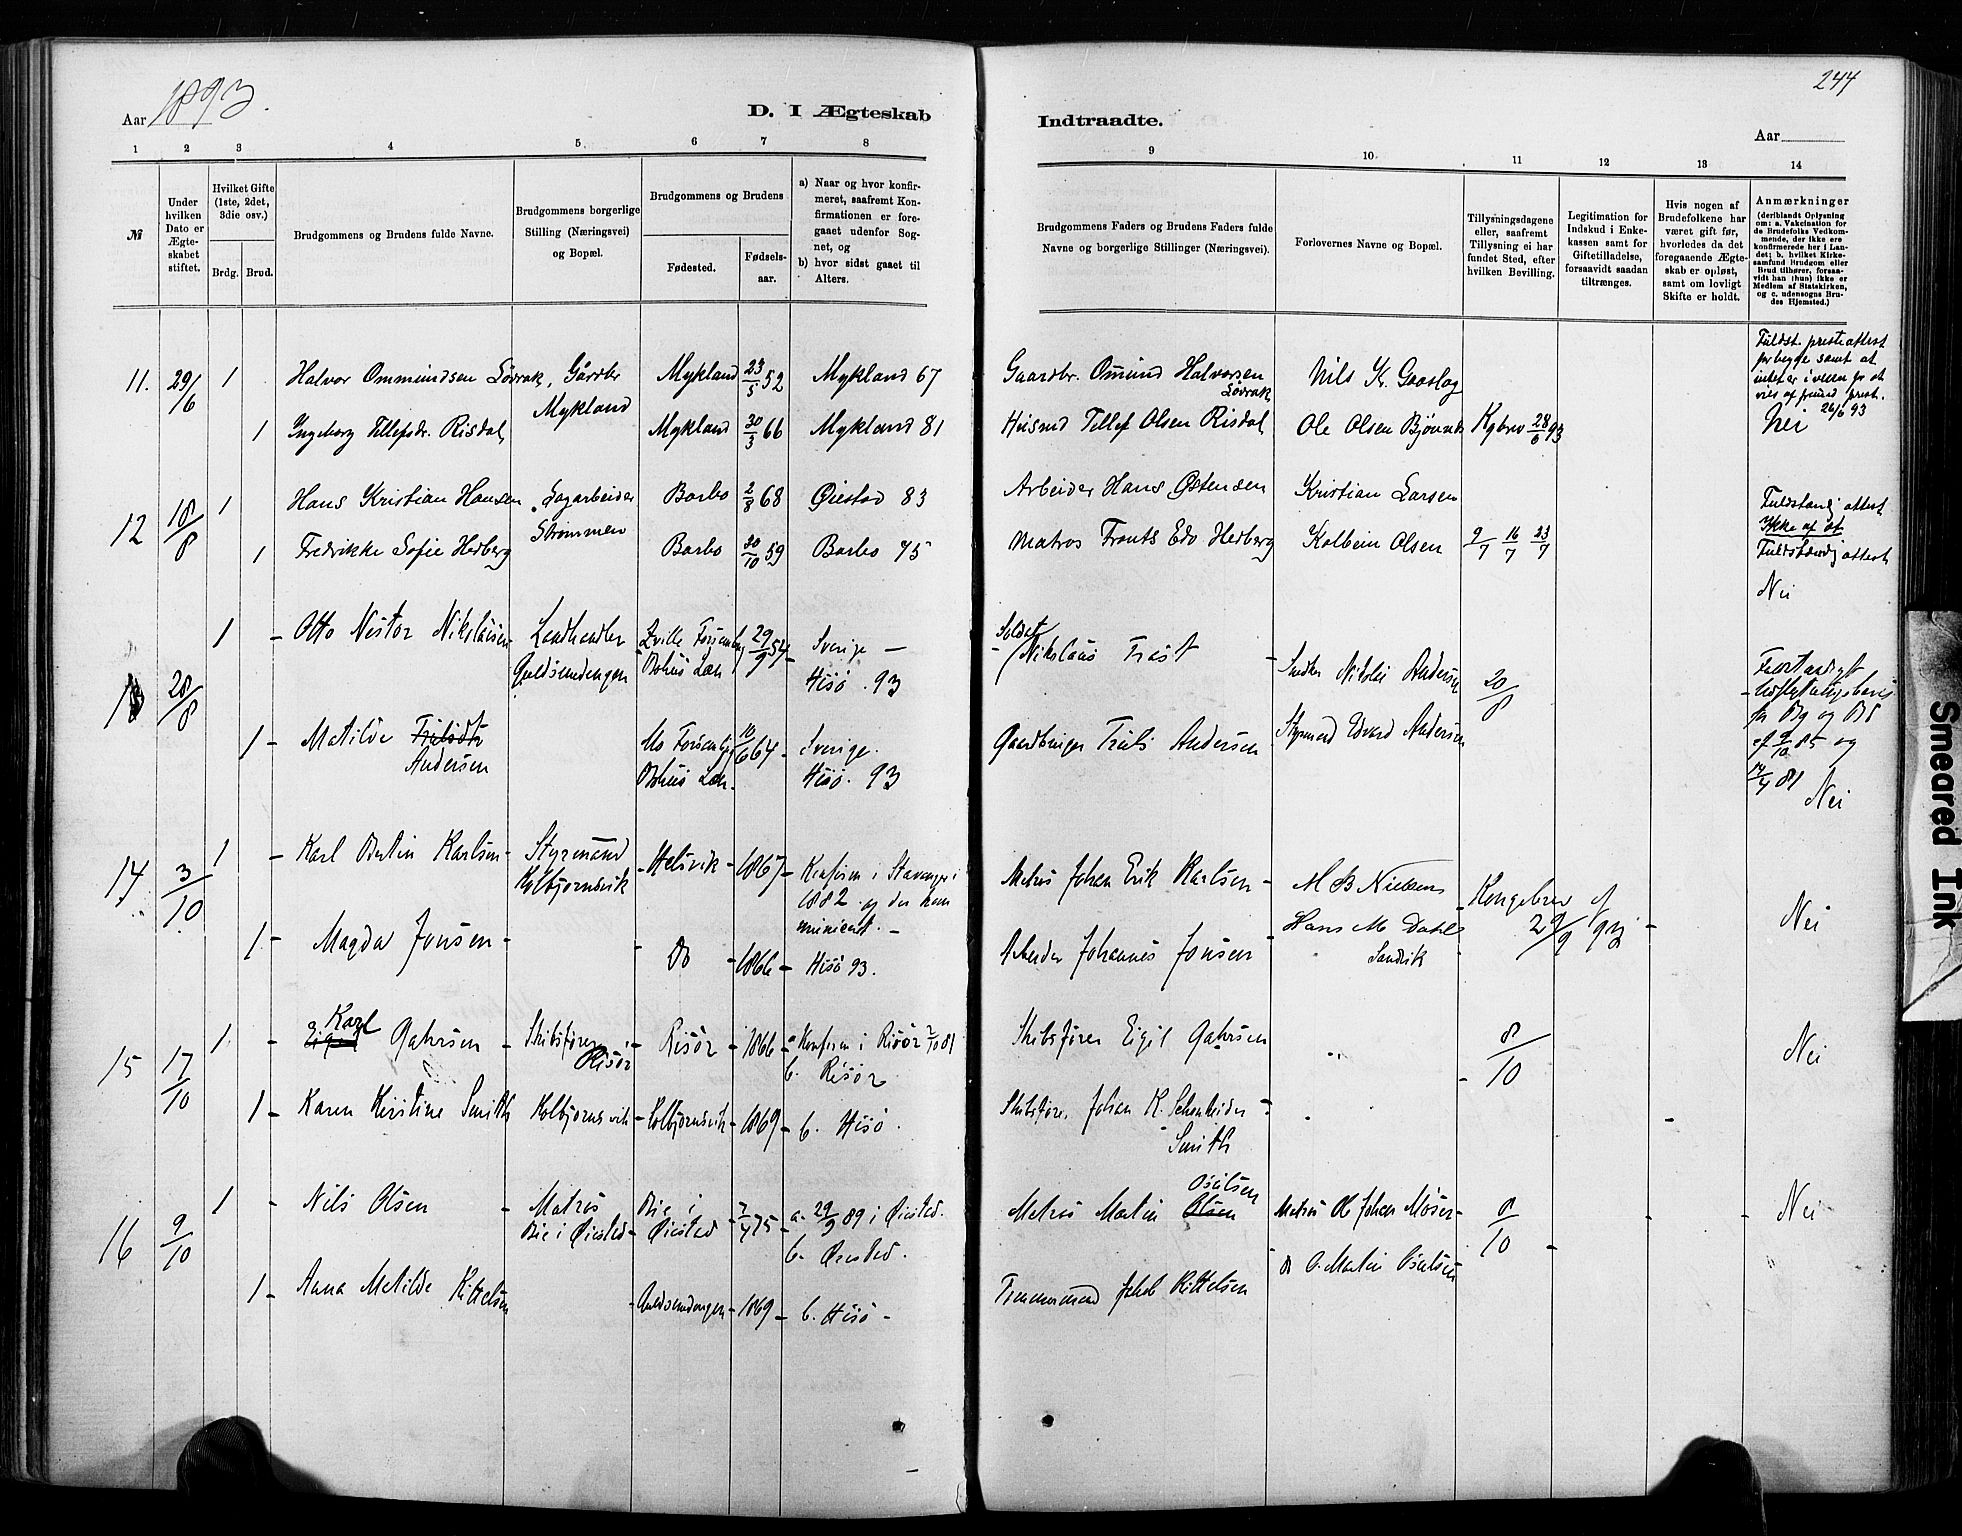 244
Aar 1893.
D. I Ægteskab
Indtraadte.
Aar
1 2 3 4 5 6 7 8
9 10. 11 12 13 14
№
Under hvilken Dato er Ægteskabet stiftet.
Hvilket Gifte (1ste, 2det, 3die osv.)
Brdg. Brud.
Brudgommens og Brudens fulde Navne.
Brudgommens borgerlige Stilling (Næringsvei) og Bopæl.
Brudgommens og Brudens
Fødested.
Fødsels-aar.
a) Naar og hvor konfir-
meret, saafremt Kon-
firmationen er fore-
gaaet udenfor Sog-
net, og
b) hvor sidst gaaet til
Alters.
Brudgommens Faders og Brudens Faders fulde
Navne og borgerlige Stillinger (Næringsvei).
Forlovernes Navne og Bopæl.
Tillysningsdagene
eller, saafremt
Tillysning ei har
fundet Sted, efter
hvilken Bevilling.
Legitimation for
Indskud i Enke-
kassen samt for
Giftetilladelse,
forsaavidt saadan
tiltrænges.
Hvis nogen af
Brudefolkene har
været gift før,
hvorledes da det
foregaaende Ægte-
skab er opløst,
samt om lovligt
Skifte er holdt.
Anmærkninger
(deriblandt Oplysning
om: a. Vakcination for
de Brudefolks Vedkom-
mende, der ikke ere
konfirmerede her i Lan-
det; b. hvilket Kirke-
samfund Brudgom eller
Brud tilhører, forsaa-
vidt han (hun) ikke er
Medlem af Statskirken,
og c. udensogns Bru-
des Hjemsted.)
11. 29/6 1 Halvor Ommundsen Lövrak, Gårdbr Mykland 23/5 52 Mykland 67 Gaardbr. Omund Halvorsen Nils Kr.
Mykland Lövrak
1 Ingeborg Tellefsdr. Risdal, Mykland 30/3 66 Mykland 81 Husmd Tellef Olsen Risdal Ole Olsen Kgbrev 28/6 93
Fuldst. presteattest
for begge samt at
26/6 93
Nei
12 18/8 1 Hans Kristian Hansen Sagarbeider Barbo 2/8 68 Øiestad 83 Arbeider Hans Østensen Kristian Larsen
Strømmen
1 Fredrikke Sofie Hedberg Barbo 30/10 59 Barbo 75 Matros Frants Edv Hedberg Kolbein Olsen 9/7 16/7 23/7
Fuldstændig attest
Fuldstændig attest
Nei
13 28/8 1 - Otto Nestor Nikolaisen Landhandler 29/9 54 Sverige -
Guldsmedengen Bohus Len Hisö . 93
Soldat
Nikolaus Frost
Nikolai Andersen 20/8
1 - Matilde Andersen 10/6 64 - Sverige.
Bohus Len. Hisö. 93
Gaardbruger Truls Andersen Styrmand Edvard Andersen
Nei
14 3/10 1 - Karl Bertin Karlsen - Styrmand - Helsvik - 1867 - Konfirm i Stavanger i
Kolbjørnsvik 1882 og der kom
municert. -
Matros Johan Erik Karlsen - M B Nielsen Kongebrev af
29/9 93 -
1 - Magda Jonsen - - Do - 1866 - Hisö 93.
Arbeider Johannes Jonsen Hans M. Dahl
Sandvik
Nei
15 17/10 1 - Karl Gahrsen - Skibsfører - Risör - 1866 - a Konfirm i Risör 2/10 81
Risör b. Risör
Skibsfører Eigil Gahrsen 8/10 Nei
1 - Karen Kirstine Smith Kolbjørnsvik - Kolbjørnsvik - 1869 - b. Hisö.
Skibsføre. Johan K. Schenheider -
Smith
16 9/10 1 - Nils Olsen - Matros Bie i 7/4 75 - a. 29/9 89 i Øiestad.
Bie i Øiestad - Øiestad b. Øiestad.
Osulsen
Matros Martin Olsen Matros Ole Johan Moser - 8/10 - Nei
1 - Anna Matilde Kittelsen - Guldsmedengen - 1869 - b. Hisö -
Tømmermand Jakob Kittelsen Do O. Martin Osulsen
Smeared Ink